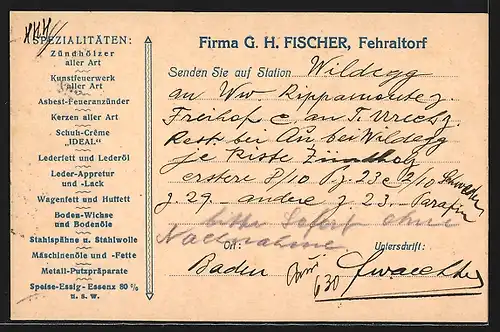 SPEZIALITÄTEN:
Zündhölzer
aller Art
Kunstfeuerwerk
aller Art
Asbest-Feueranzünder
Kerzen aller Art
Schuh-Crême
"IDEAL"
Lederfett und Lederöl
Leder-Appretur
und -Lack
Wagenfett und Huffett
Boden-Wichse
und Bodenöle
Stahlspähne u. Stahlwolle
Mäschinenöle und -Fette
Metall-Putzpräparate
Speise-Essig-Essenz 80 %
u. s. w.
Firma G. H. FISCHER, Fehraltorf
Senden Sie auf Station Wildegg
an Ww
Freihof an
Rest. bei Au bei Wildegg
je Kiste Zündholz
erstere 8/10 23 2/10
29 - andere 23. - Parafin
bitte Sofort ohne
Nachnahme.
Ort: Unterschrift:
Baden
630